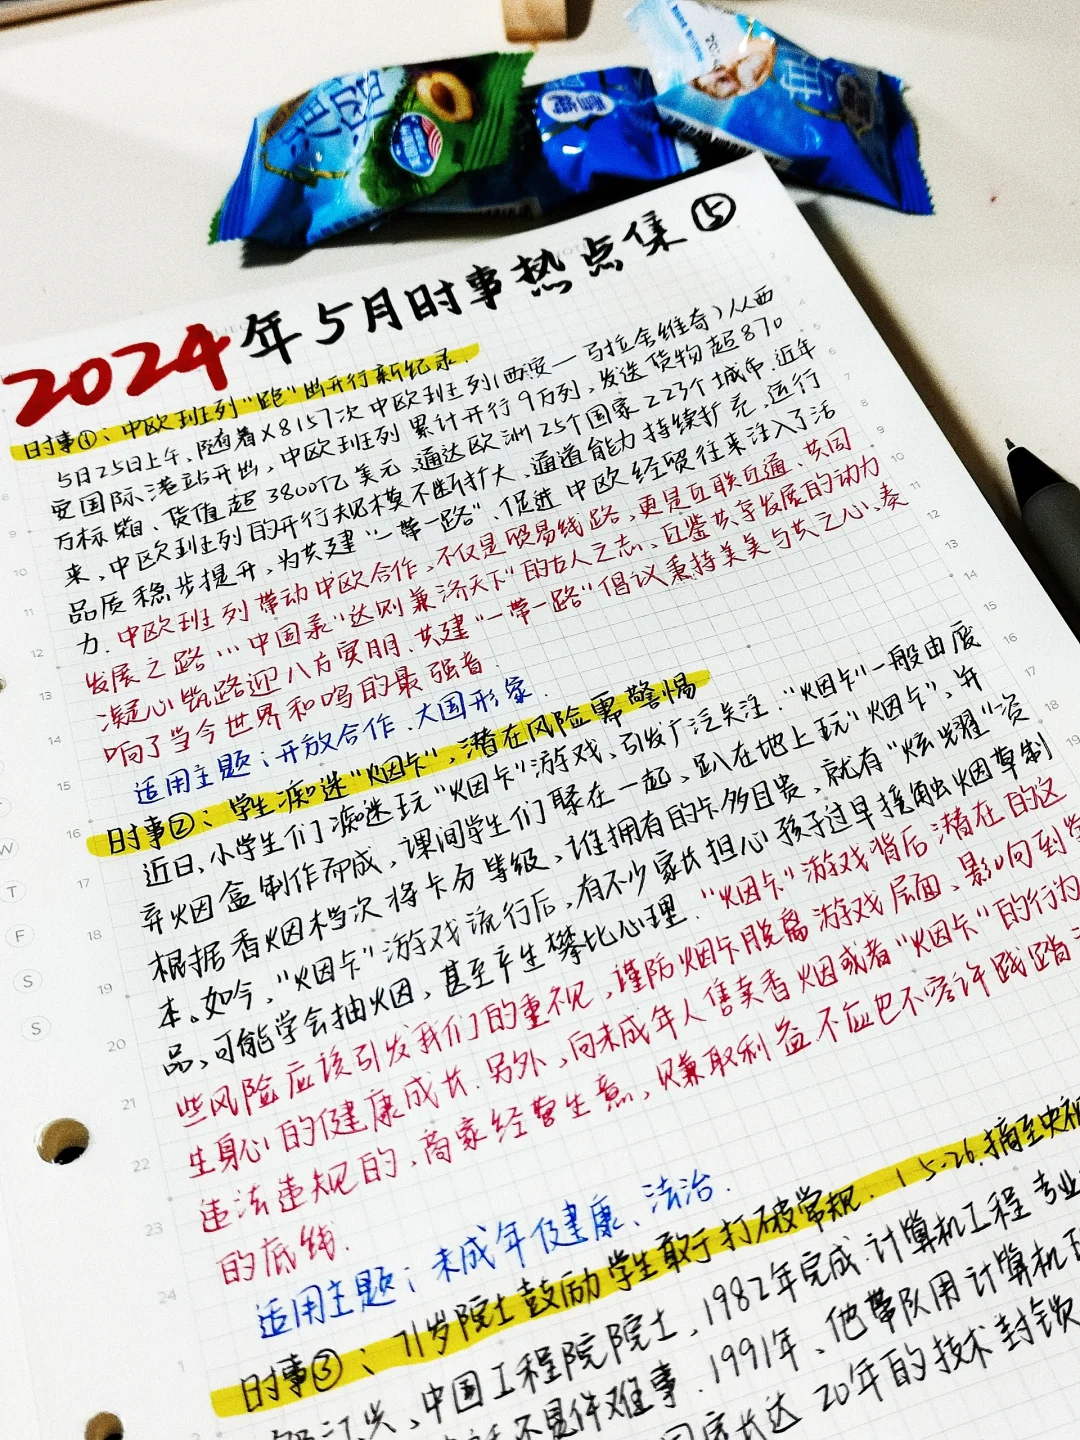 西梅
2024年5月时事热点集⑤
时事①:中欧班列"跑"出开行新纪录.
5月25日上午,随着X8157次中欧班列(西安—马拉舍维奇)从西
安国际港站开出,中欧班列累计开行9万列,发送货物超870
万标箱、货值超3800亿美元,通达欧洲25个国家223个城市.近年
来,中欧班列的开行规模不断扩大、通道能力持续扩充,运行
品质稳步提升,为共建"一带一路"、促进中欧经贸往来注入了活
力.中欧班列带动中欧合作,不仅是贸易线路,更是互联互通、共同
发展之路…中国承"达则兼济天下"的古人之志、互鉴共享发展的动力
凝心筑路迎八方宾朋.共建"一带一路"倡议秉持美美与共之心,奏
响了当今世界和鸣的最强音.
适用主题:开放合作、大国形象.
时事②:学生痴迷"烟卡",潜在风险需警惕
近日,小学生们痴迷玩"烟卡"游戏,引发广泛关注."烟卡"一般由废
弃烟盒制作而成,课间学生们聚在一起,趴在地上玩"烟卡",并
根据香烟档次将卡分等级,谁拥有的卡多且贵,就有"炫耀"资
本。如今,"烟卡"游戏流行后,有不少家长担心孩子过早接触烟草制
品,可能学会抽烟,甚至产生攀比心理."烟卡"游戏背后潜在的这
些风险应该引发我们的重视,谨防烟卡脱离游戏层面,影响到学
生身心的健康成长.另外,向未成年人售卖香烟或者"烟卡"的行为
违法违规的,商家经营生意,赚取利益不应也不容许践踏
的底线.
适用主题:未成年健康、法治.
时事③:71岁院士鼓励学生敢于打破常规.(5·26.摘至央视
中国工程院院士,1982年完成计算机工程专业
不是件难事.1991年,他带队用计算机
国家长达20年的技术封锁
W
T
F
S
S